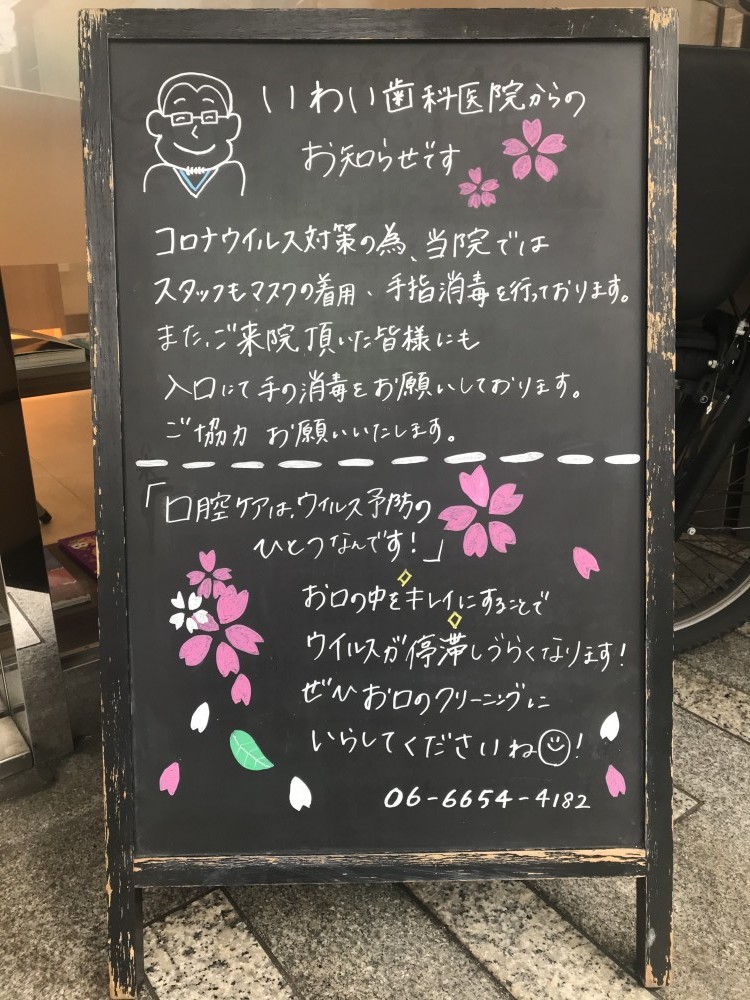 いわい歯科医院からの
お知らせです
コロナウイルス対策の為、当院では
スタッフもマスクの着用、手指消毒を行っております。
また、ご来院頂いた皆様にも
入口にて手の消毒をお願いしております。
ご協力お願いいたします。
「口腔ケアは、ウイルス予防の
ひとつなんです!」
お口の中をキレイにすることで
ウイルスが停滞しづらくなります!
ぜひお口のクリーニングに
いらしてくださいね!
06-6654-4182